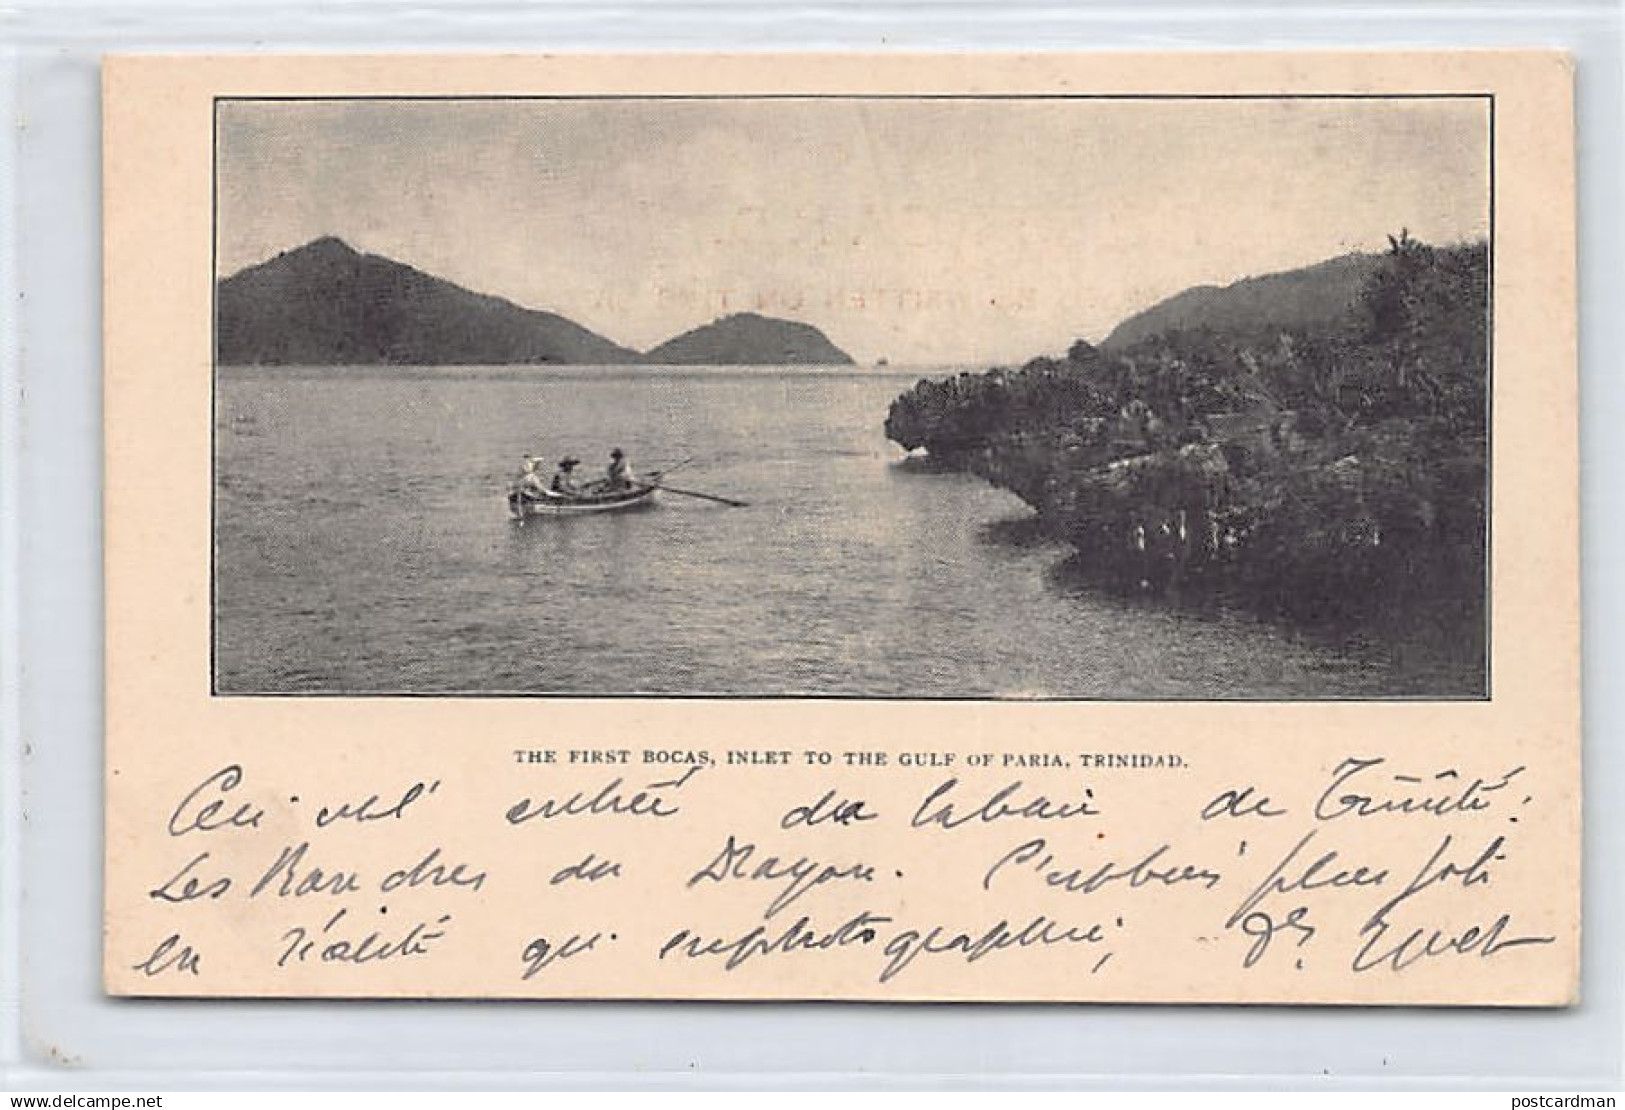 THE FIRST BOCAS, INLET TO THE GULF OF PARIA, TRINIDAD.
Ceci est l'entrée de la baie de Trinité.
Les Bouches du Dragon. C'est bien plus joli
en réalité qu'en photographie,
www.delcampe.net
postcardman